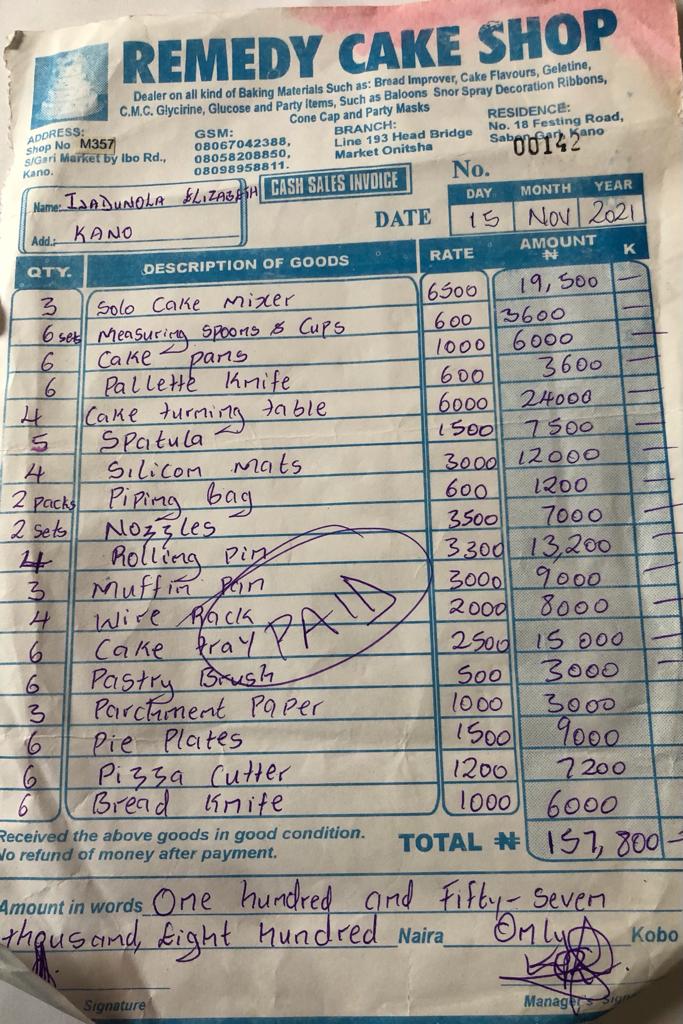 REMEDY CAKE SHOP
Dealer on all kind of Baking Materials Such as: Bread Improver, Cake Flavours, Geletine,
C.M.C. Glycirine, Glucose and Party items, Such as Baloons Snor Spray Decoration Ribbons,
Cone Cap and Party Masks
ADDRESS:
Shop No M357
S/Gari Market by Ibo Rd.,
Kano.
GSM:
08067042388,
08058208850,
08098958811.
BRANCH:
Line 193 Head Bridge
Market Onitsha
RESIDENCE:
No. 18 Festing Road,
Sabon Gari, Kano
No. 00142
CASH SALES INVOICE
Name: IJADUNOLA ELIZABETH
Add.: KANO
DATE
DAY MONTH YEAR
15 NOV 2021
QTY. DESCRIPTION OF GOODS RATE AMOUNT ₦ K
3 Solo Cake Mixer 6500 19,500 —
6 sets Measuring Spoons & Cups 600 3600 —
6 Cake pans 1000 6000 —
6 Pallette Knife 600 3600 —
4 Cake turning table 6000 24000 —
5 Spatula 1500 7500 —
4 Silicon Mats 3000 12000 —
2 packs Piping bag 600 1200 —
2 sets Nozzles 3500 7000 —
4 Rolling Pin 3300 13,200 —
3 Muffin Pan 3000 9000 —
4 Wire Rack 2000 8000 —
6 Cake tray 2500 15 000 —
6 Pastry Brush 500 3000 —
3 Parchment Paper 1000 3000 —
6 Pie Plates 1500 9000 —
6 Pizza Cutter 1200 7200 —
6 Bread Knife 1000 6000 —
PAID
Received the above goods in good condition.
No refund of money after payment.
TOTAL ₦ 157, 800 —
Amount in words One hundred and Fifty-Seven
thousand, Eight Hundred Naira Only Kobo
Signature
Manager's